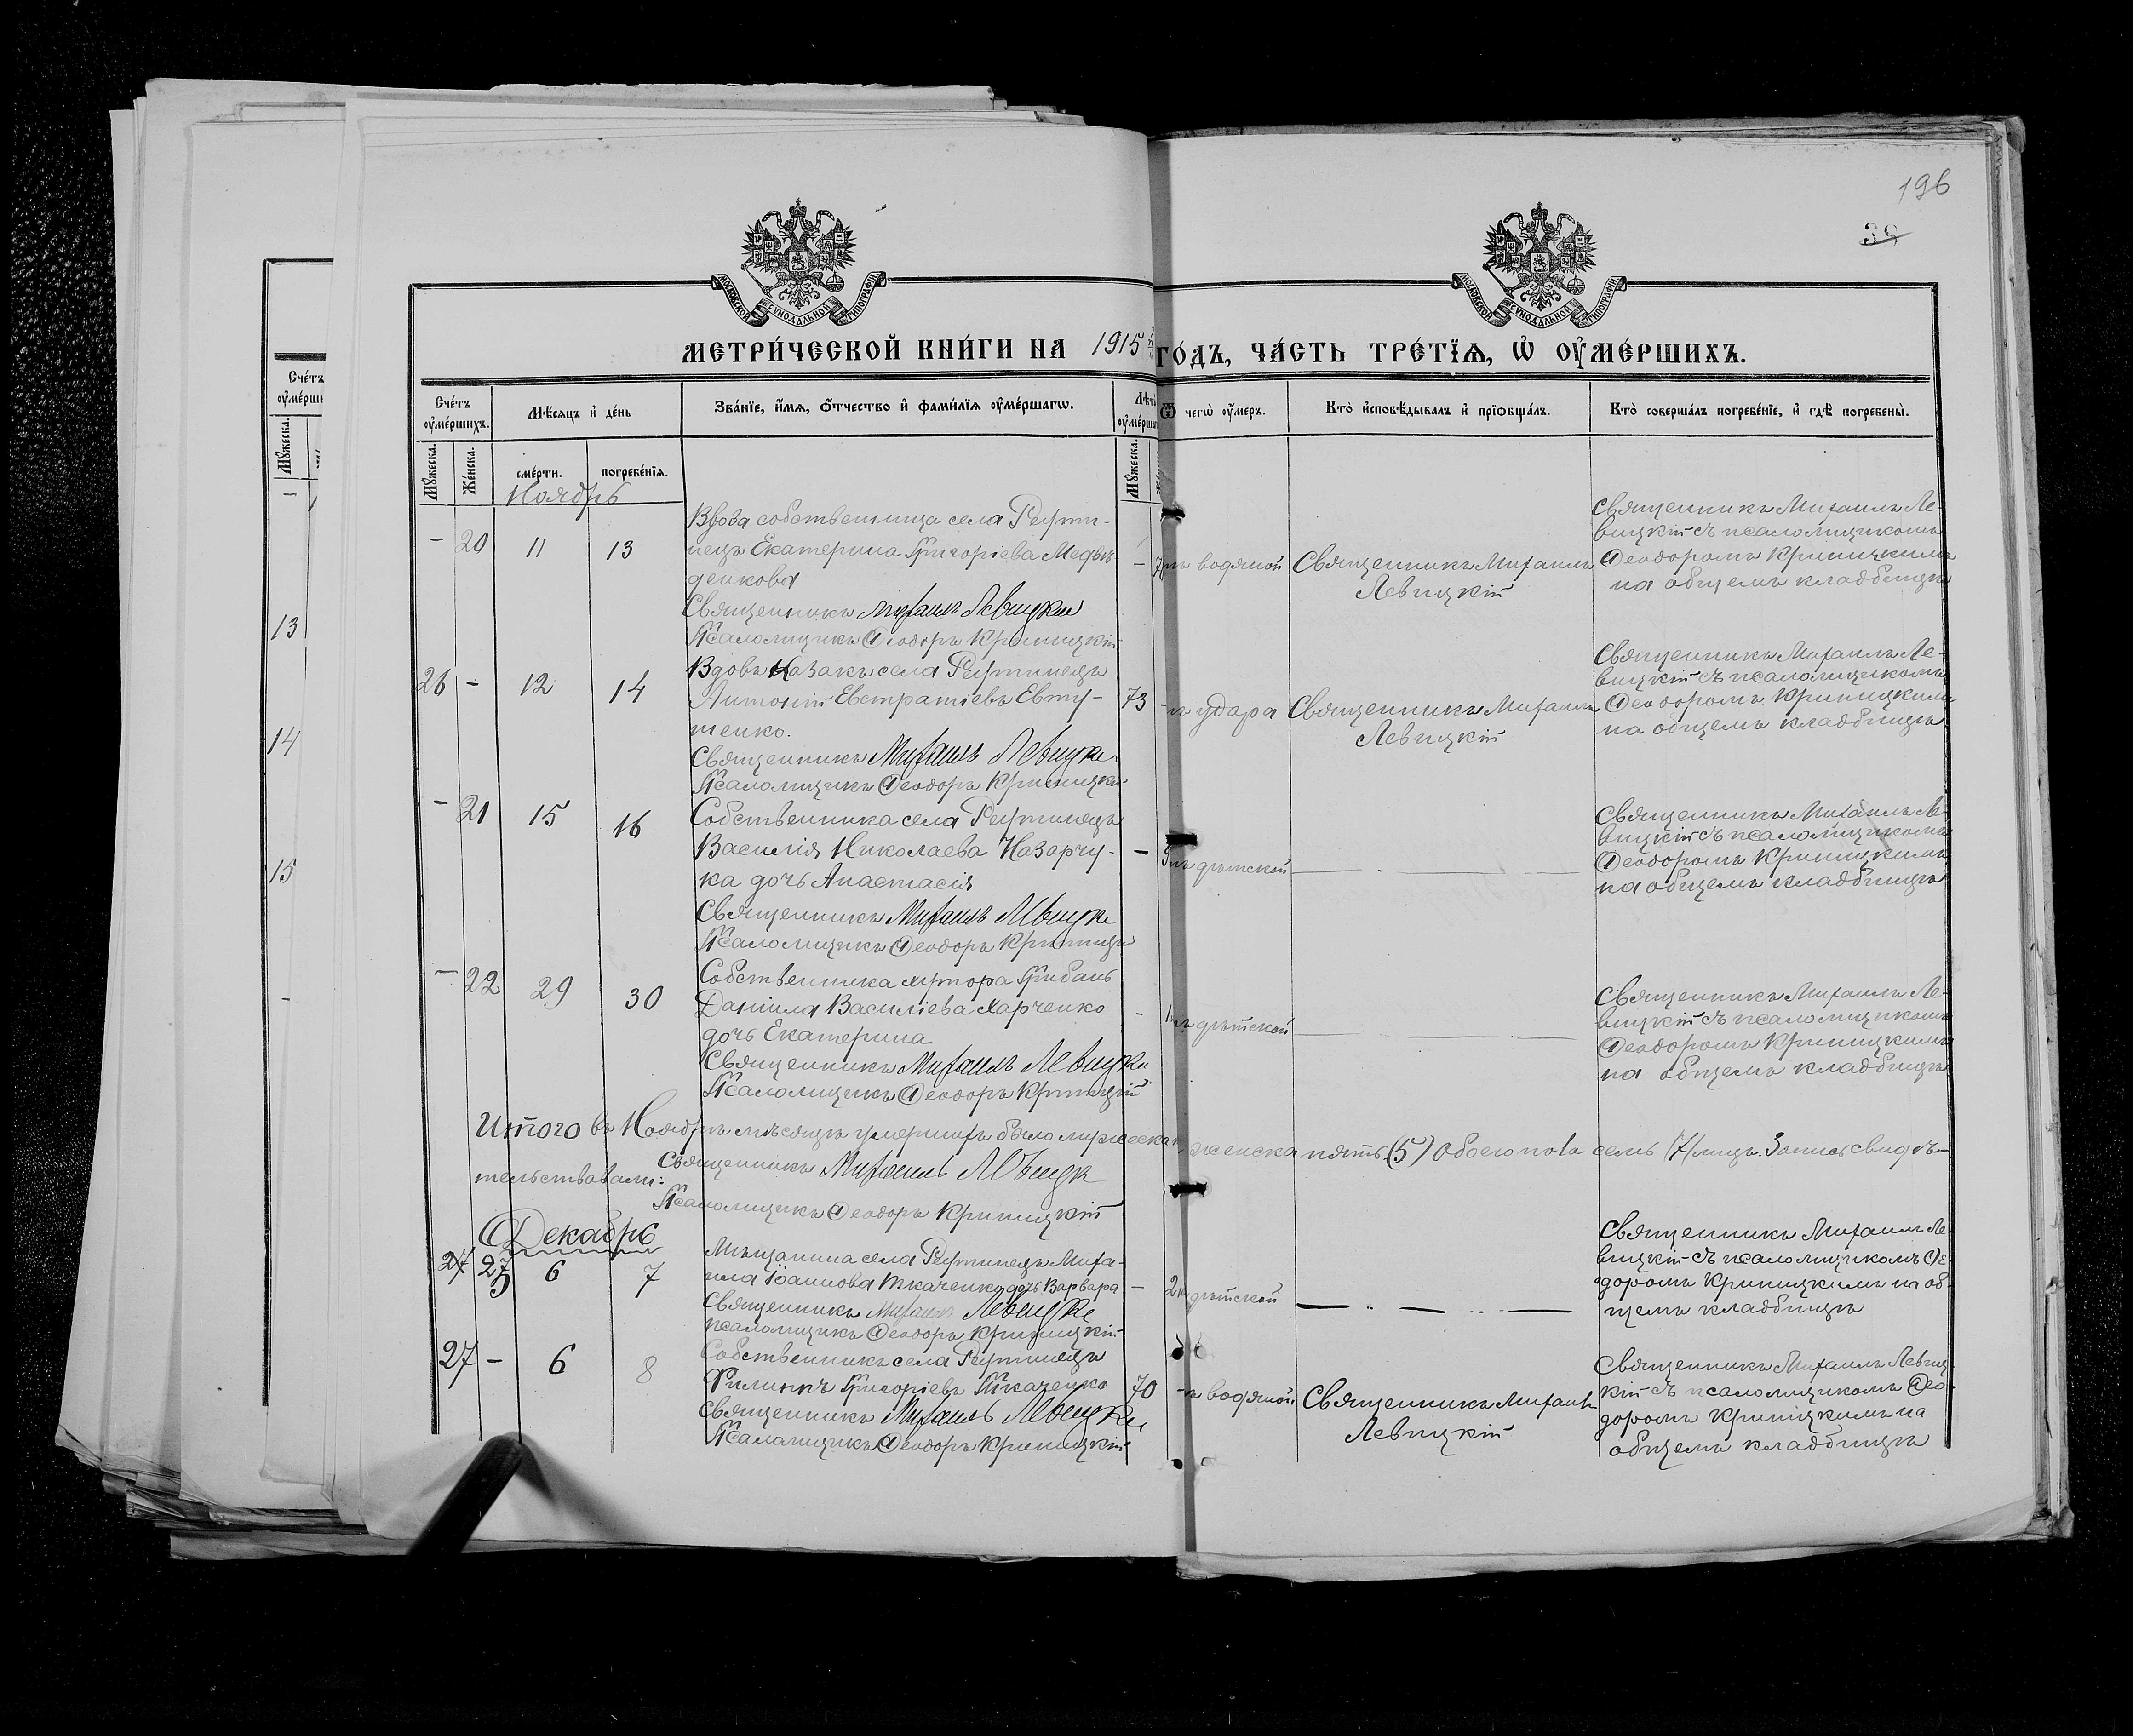 196
39
МОСКОВСКОЙ СУНОДАЛЬНОЙ ТИПОГРАФІИ
МОСКОВСКОЙ СУНОДАЛЬНОЙ ТИПОГРАФІИ
МЕТРИ́ЧЕСКОЙ КНИ́ГИ НА 1915 ГО́ДЪ, ЧА́СТЬ ТРЕ́ТЇѦ, Ѡ҆ ОУ҆МЕ́РШИХЪ.
Сче́тъ оу҆ме́ршихъ.
Мѣ́сяцъ и҆ де́нь
Зва́нїе, и҆́мѧ, ѻ҆́тчество и҆ фами́лїѧ оу҆ме́ршагѡ.
Лѣт
оу҆ме́рша
Ѿ чегѡ̀ оу҆́меръ.
Кто̀ и҆сповѣ́дывалъ и҆ прїѡбща́лъ.
Кто̀ соверша́лъ погребе́нїе, и҆ гдѣ̀ погребены̀.
Мꙋ́жеска.
Же́нска.
сме́рти.
погребе́нїѧ.
Мꙋ́жеска.
Ноябрь
- 20 11 13
Вдова собственница села Рейти-
нецъ Екатерина Григоріева Медвѣ
денкова
Священникъ Михаилъ Левицкій
Псаломщикъ Ѳеодоръ Криницкій
- водяной
Священникъ Михаилъ
Левицкій
Священникъ Михаилъ Ле-
вицкій съ псаломщикомъ
Ѳеодоромъ Криницкимъ
на общемъ кладбищѣ
26 - 12 14
Вдовъ Козакъ села
Антоній Евстратіевъ Евту-
шенко.
Священникъ Михаилъ Левицкій
Псаломщикъ Ѳеодоръ Криницкій
73 - удара
Священникъ Михаилъ
Левицкій
Священникъ Михаилъ Ле-
вицкій съ псаломщикомъ
Ѳеодоромъ Криницкимъ
на общемъ кладбищѣ
- 21 15 16
Собственника села
Василія Николаева Назарчу-
ка дочь Анастасія
Священникъ Михаилъ Левицкій
Псаломщикъ Ѳеодоръ Криницкій
- дѣтской
Священникъ Михаилъ Ле-
вицкій съ псаломщикомъ
Ѳеодоромъ Криницкимъ
на общемъ кладбищѣ
- 22 29 30
Собственника хутора Грибань
Даніила Василіева Харченко
дочь Екатерина
Священникъ Михаилъ Левицкій
Псаломщикъ Ѳеодоръ Криницкій
- дѣтской
Священникъ Михаилъ Ле-
вицкій съ псаломщикомъ
Ѳеодоромъ Криницкимъ
на общемъ кладбищѣ
Итого въ Ноябрѣ мѣсяцѣ умершихъ было мужеска женска пять (5) обоего пола семь (7) лицъ. Запись свидѣ-
тельствовали: Священникъ Михаилъ Левицкій
Псаломщикъ Ѳеодоръ Криницкій
Декабрь
27 23 6 7
Мѣщанина села Миха-
ила Іоаннова Ткаченко дочь Варвара
Священникъ Михаилъ Левицкій
псаломщикъ Ѳеодоръ Криницкій
- 2 дѣтской
Священникъ Михаилъ Ле-
вицкій съ псаломщикомъ Ѳе-
одоромъ Криницкимъ на об-
щемъ кладбищѣ
27 - 6 8
Собственникъ села
Филиппъ Григоріевъ Ткаченко
Священникъ Михаилъ Левицкій
Псаломщикъ Ѳеодоръ Криницкій
70 - водяной
Священникъ Михаилъ
Левицкій
Священникъ Михаилъ Левиц-
кій съ псаломщикомъ Ѳео-
доромъ Криницкимъ на
общемъ кладбищѣ
Сче́тъ
оу҆ме́рши
Мꙋ́жеска.
-
13
14
15
-